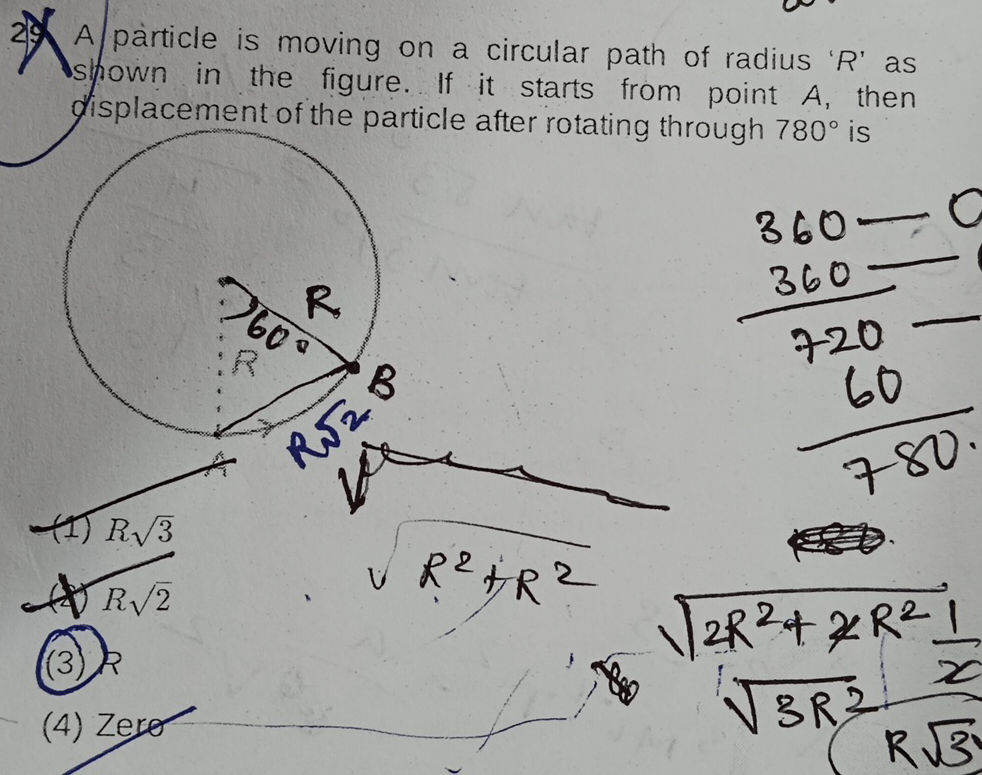 29 A particle is moving on a circular path of radius ‘R’ as
shown in the figure. If it starts from point A, then
displacement of the particle after rotating through 780° is
R
60°
R
B
R√2
A
360 — 0
360 —
720 —
60
780.
(1) R√3
(2) R√2
(3) R
(4) Zero
√R²+R²
√2R²+2R² 1/2
√3R²
R√3